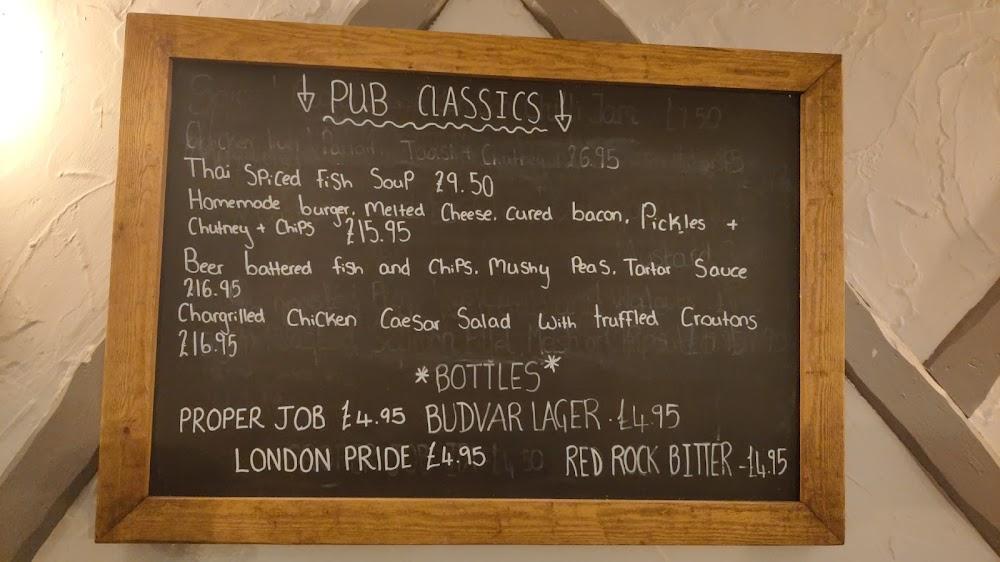 ↓ PUB CLASSICS ↓
Toast + Chutney £6.95
Thai Spiced Fish Soup £9.50
Homemade burger, Melted Cheese, cured bacon, Pickles +
Chutney + Chips £15.95
Beer battered fish and Chips, Mushy Peas, Tartar Sauce
£16.95
Chargrilled Chicken Caesar Salad with truffled Croutons
£16.95
*BOTTLES*
PROPER JOB £4.95 BUDVAR LAGER - £4.95
LONDON PRIDE £4.95 RED ROCK BITTER - £4.95